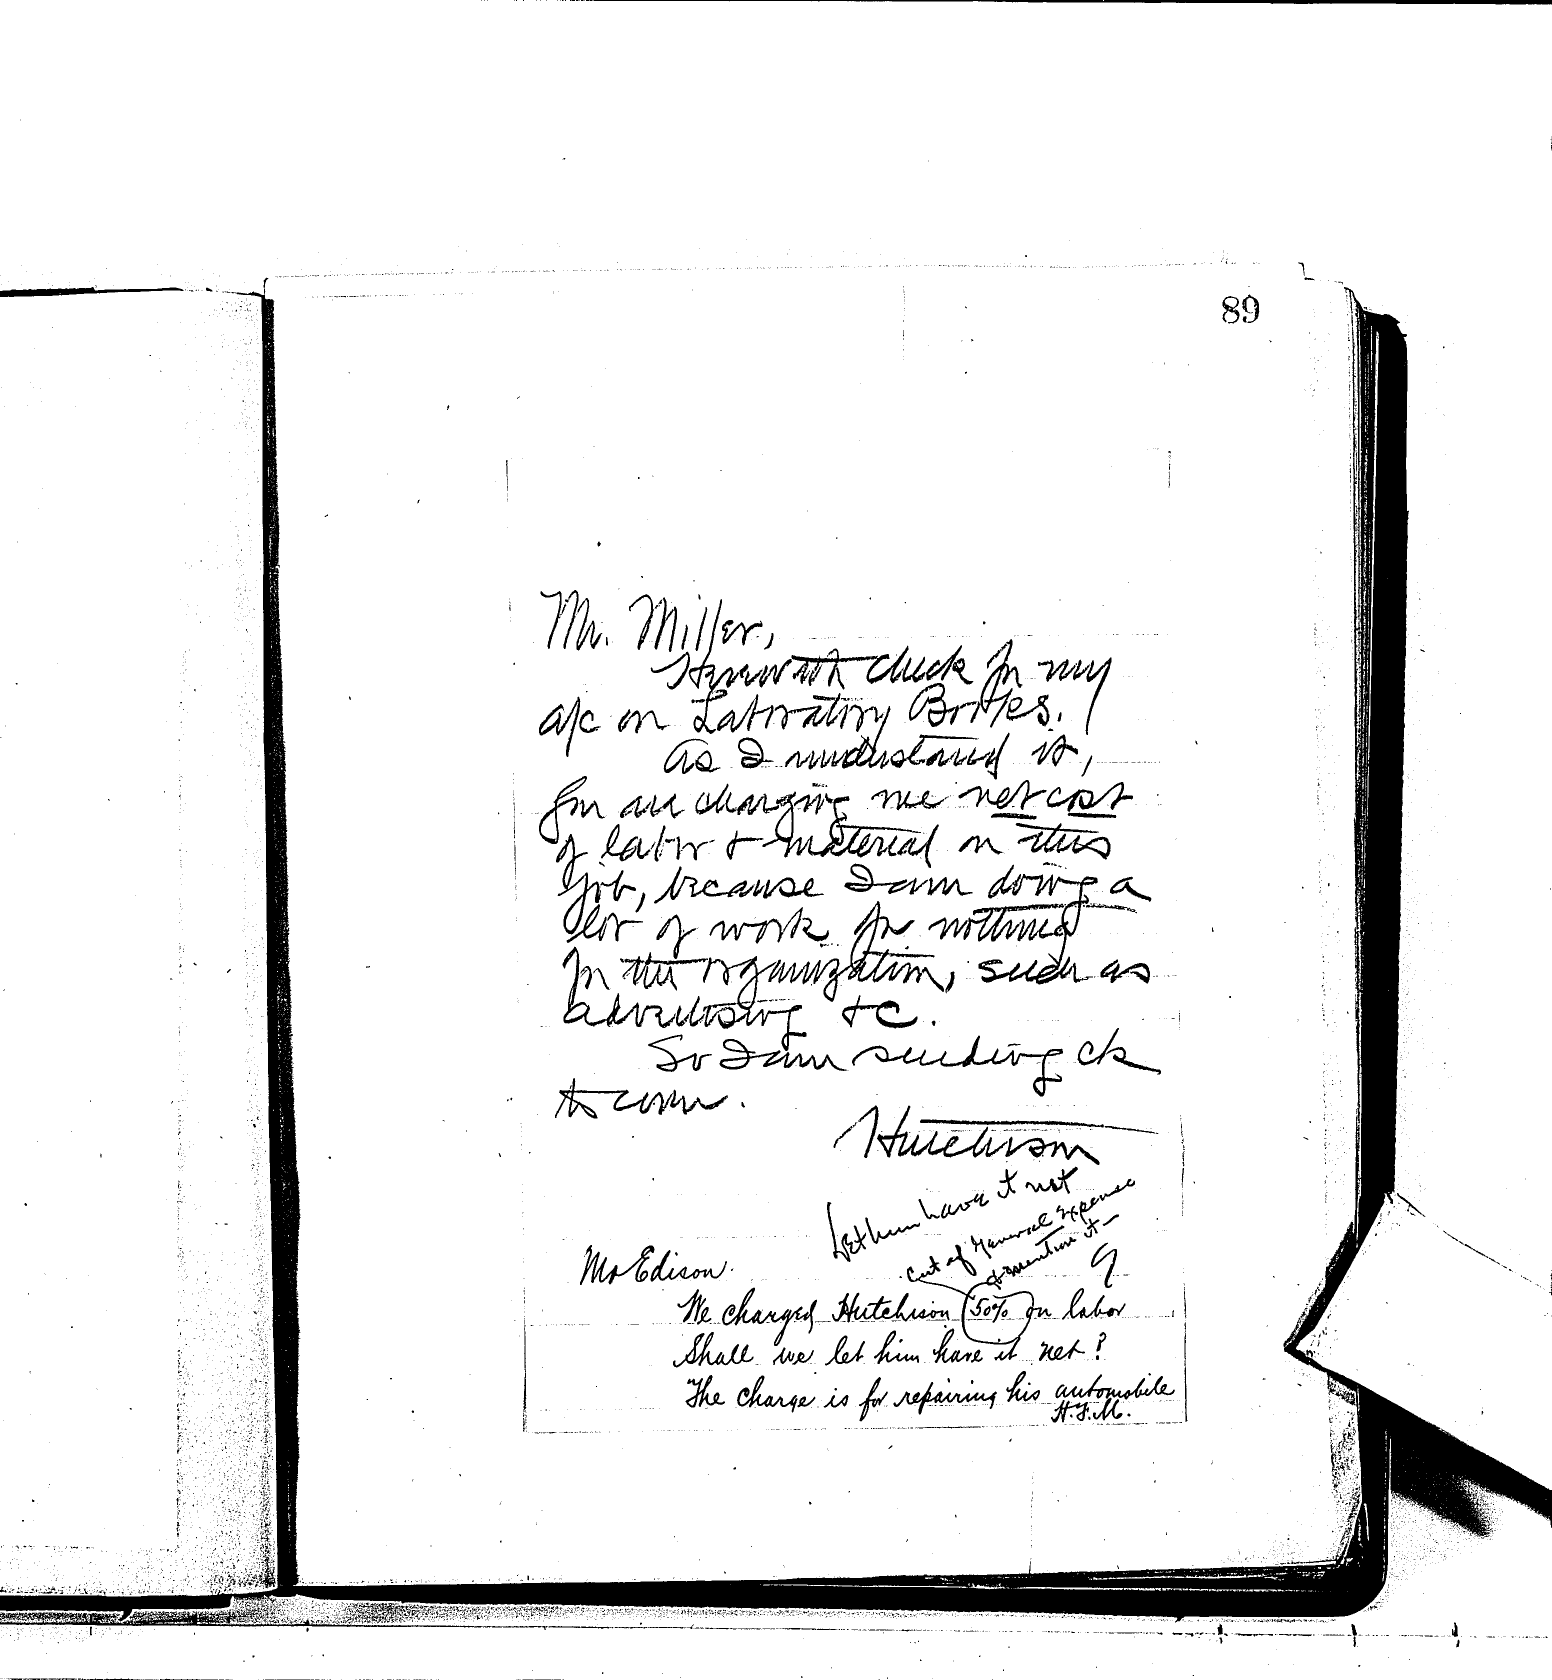 89
Mr. Miller,
Herewith check for my
a/c on Laboratory Books.
As I understand it,
you are charging me net cost
of labor & material on this
job, because I am doing a
lot of work for nothing
for the organization, such as
advertising &c.
So I am sending ck
to cover.
Hutchison
Let him have it net
Cut off General Expense
& mention it—
Mr Edison.
We charged Hutchison 50% on labor
Shall we let him have it net?
The charge is for repairing his automobile
H.F.M.